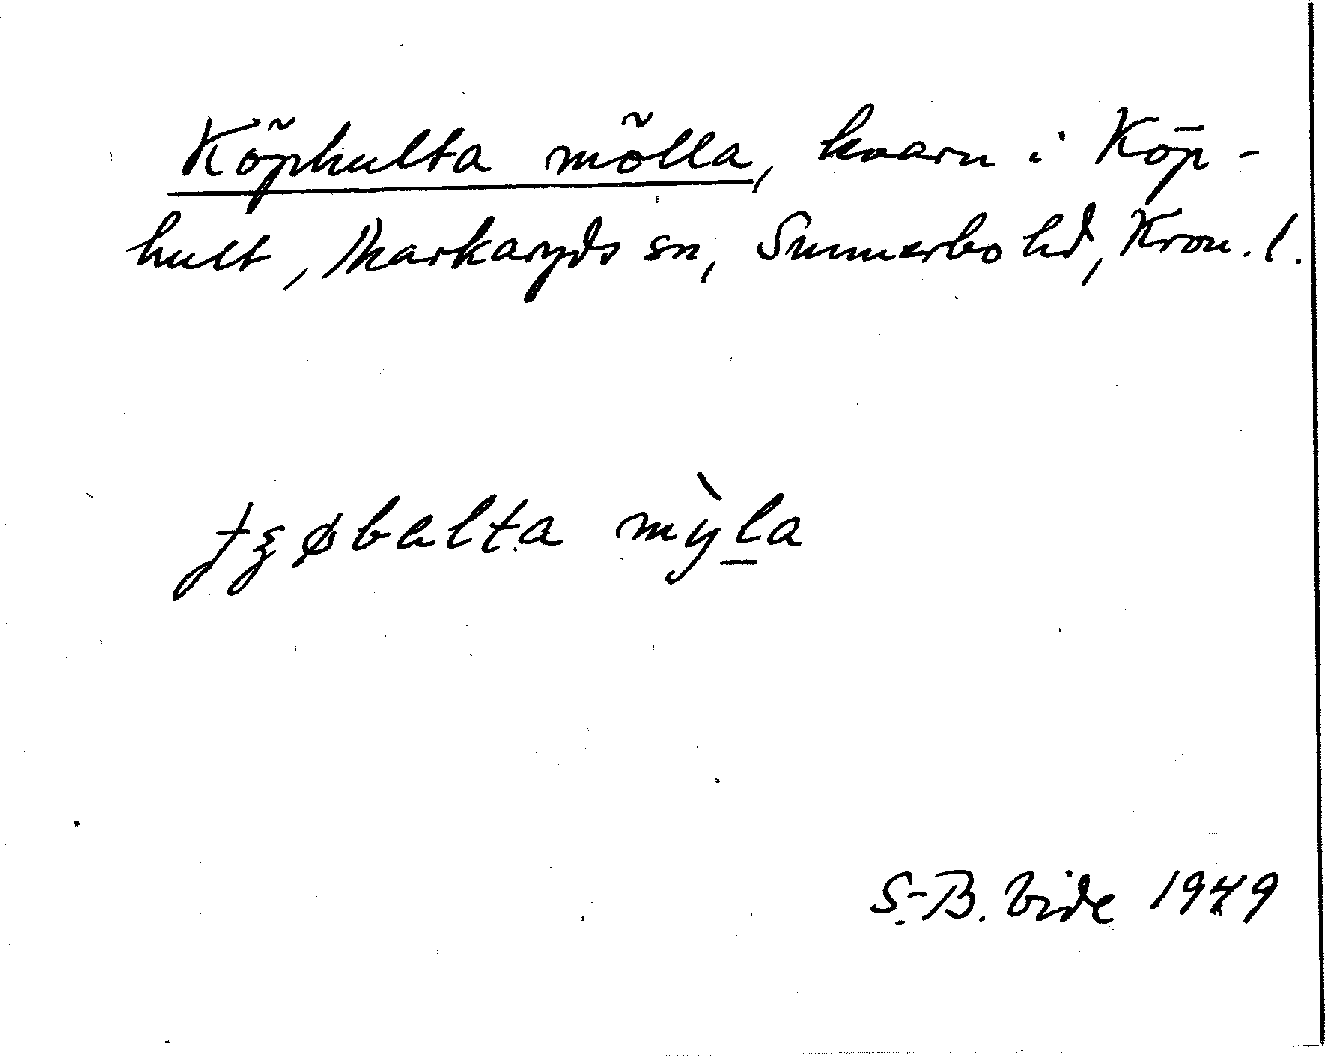 Köphulta mölla, kvarn i Köp-
hult, Markaryds sn, Sunnerbo hd, Kron. l.
ɟʒøbalta mỳla
S.-B. Vide 1949